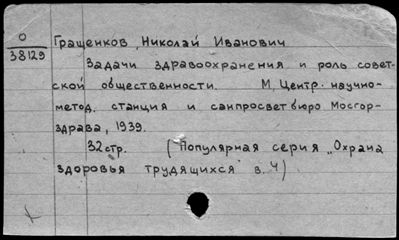 О
38129
Гращенков, Николай Иванович
Задачи здравоохранения и роль совет-
ской общественности. М, Центр. научно-
метод. станция и санпросветбюро Мосгор-
здрава, 1939.
32стр. (Популярная серия „Охрана
здоровья трудящихся в. 4)